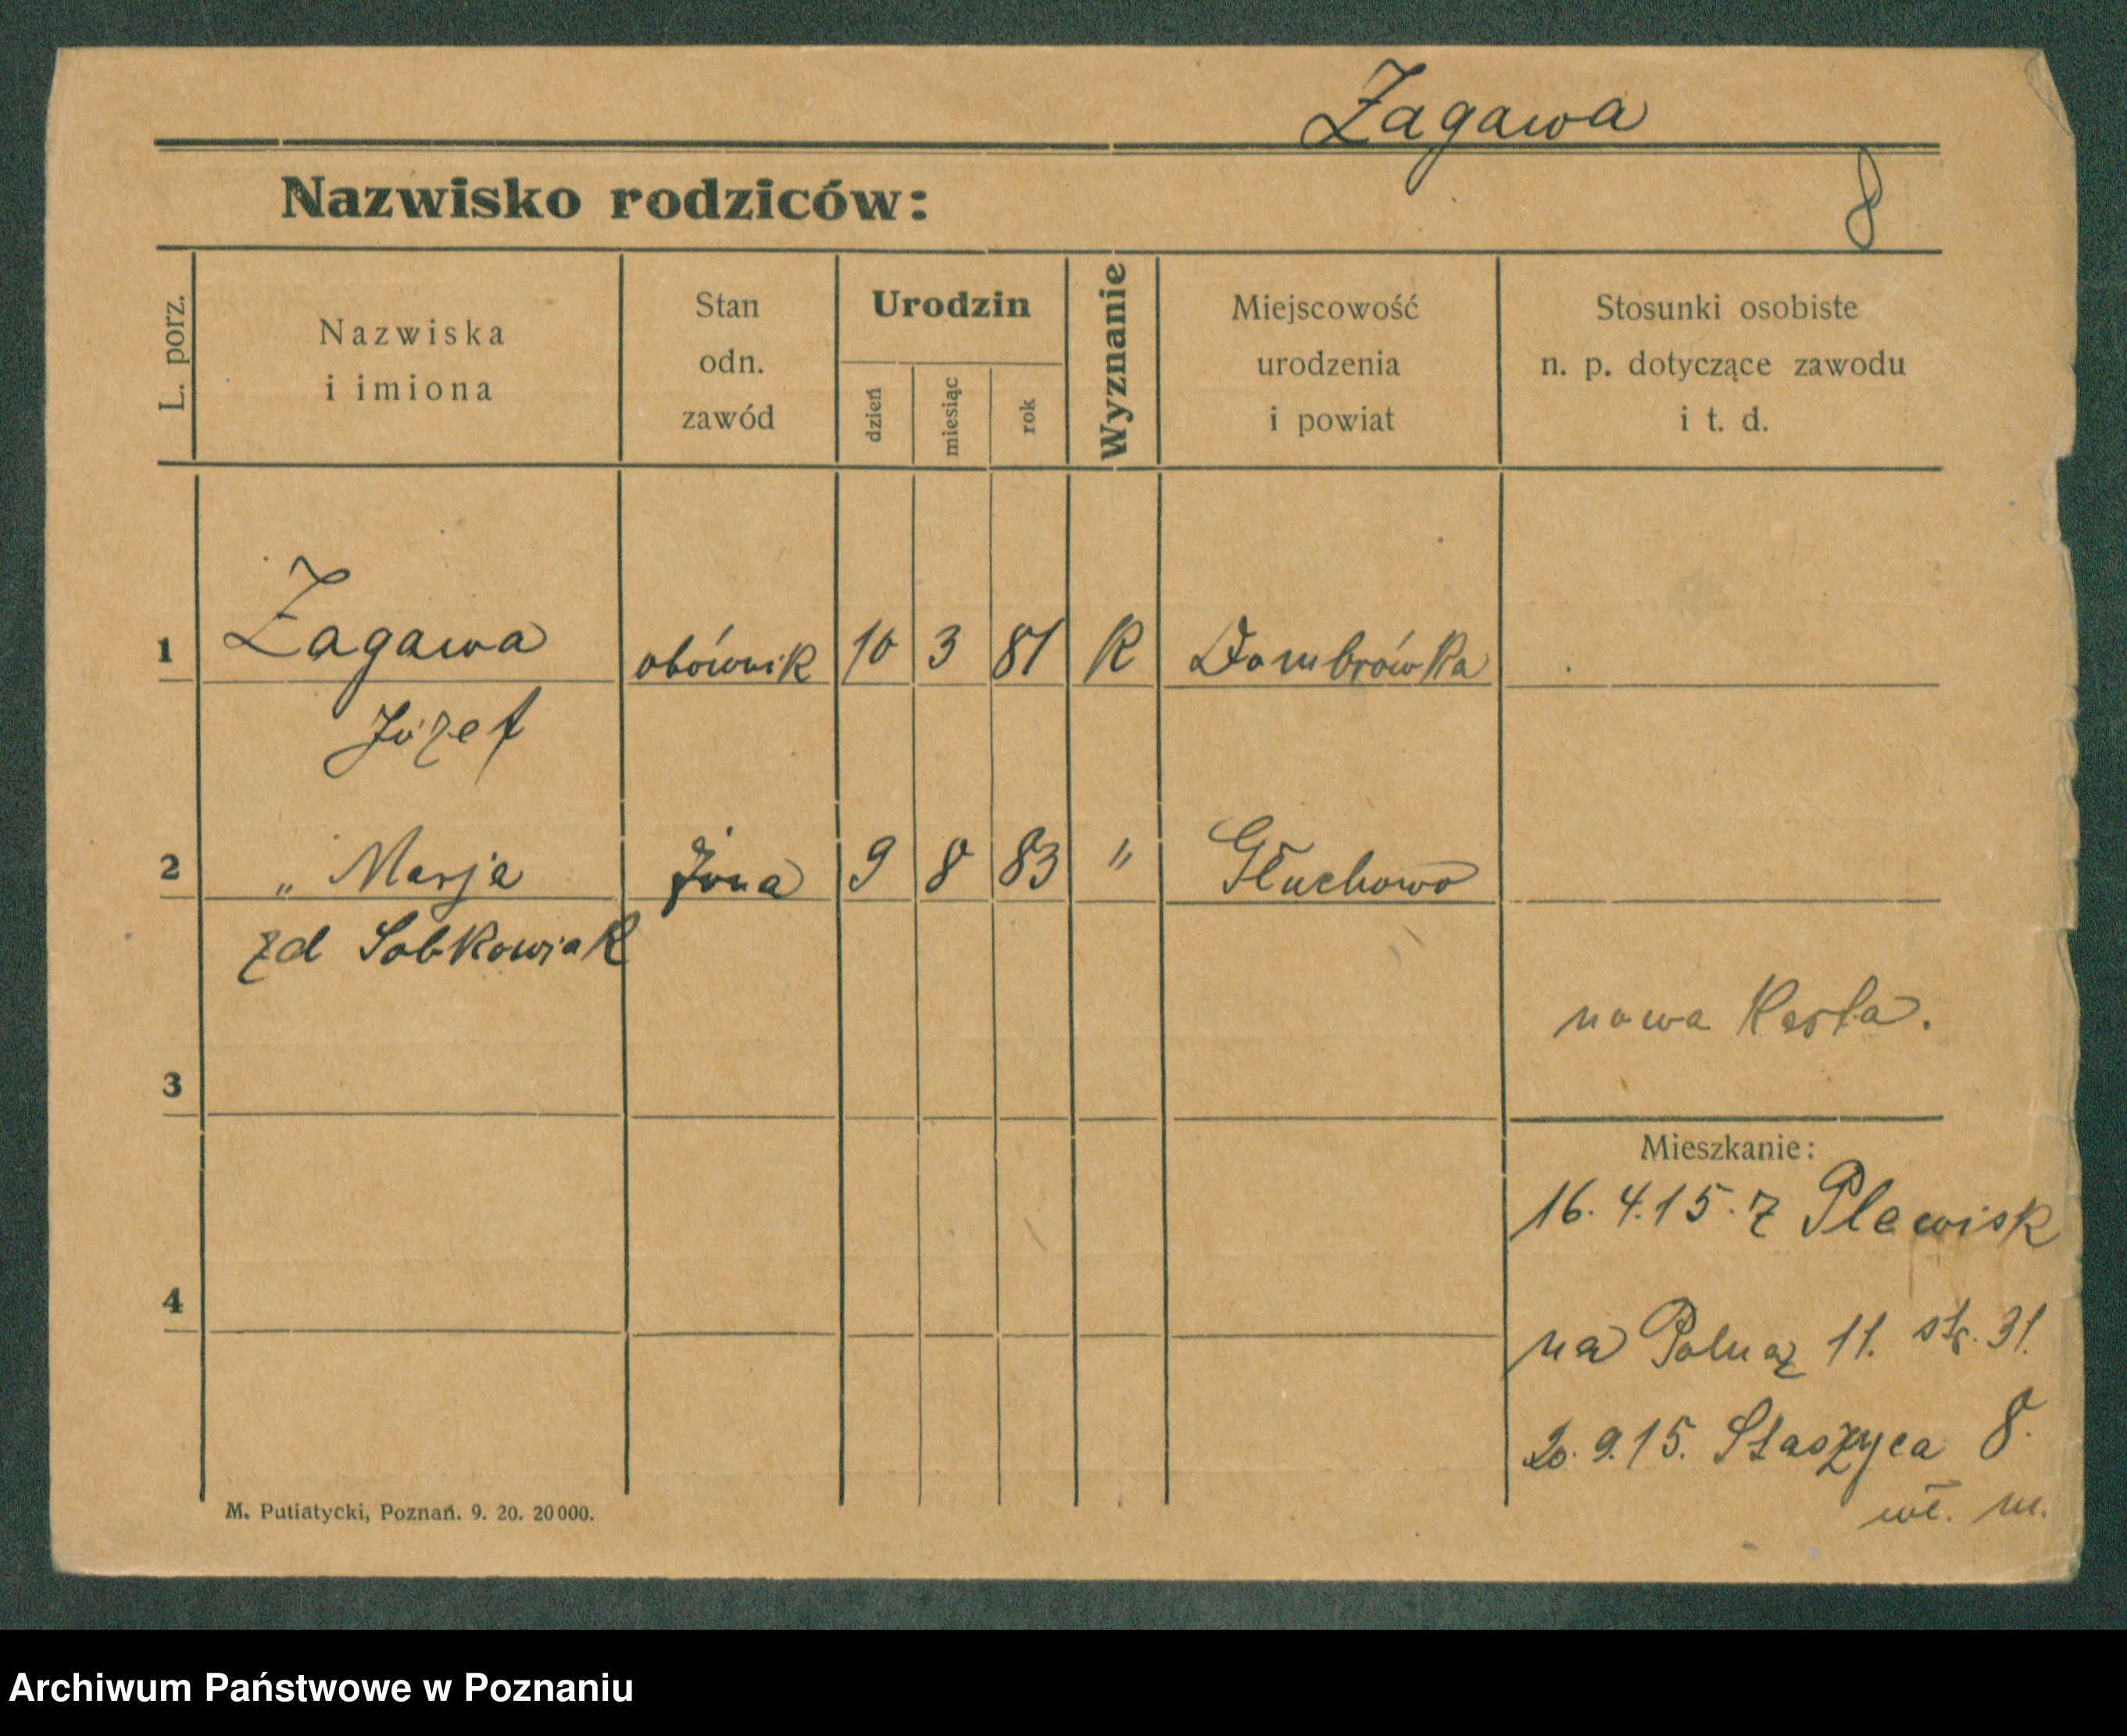 Zagawa
Nazwisko rodziców:
8
L. porz.
Nazwiska
i imiona
Stan
odn.
zawód
Urodzin
dzień
miesiąc
rok
Wyznanie
Miejscowość
urodzenia
i powiat
Stosunki osobiste
n. p. dotyczące zawodu
i t. d.
1 Zagawa obównik 10 3 81 K Dombrówka
Józef
2 „ Marja żona 9 8 83 " Głuchowo
zd Sobkowiak
nowa Karta.
3
Mieszkanie:
16. 4. 15. z Plewisk
4
na Polną 11. str. 31.
20. 9. 15. Staszyca 8.
wł. m.
M. Putiatycki, Poznań. 9. 20. 20000.
Archiwum Państwowe w Poznaniu